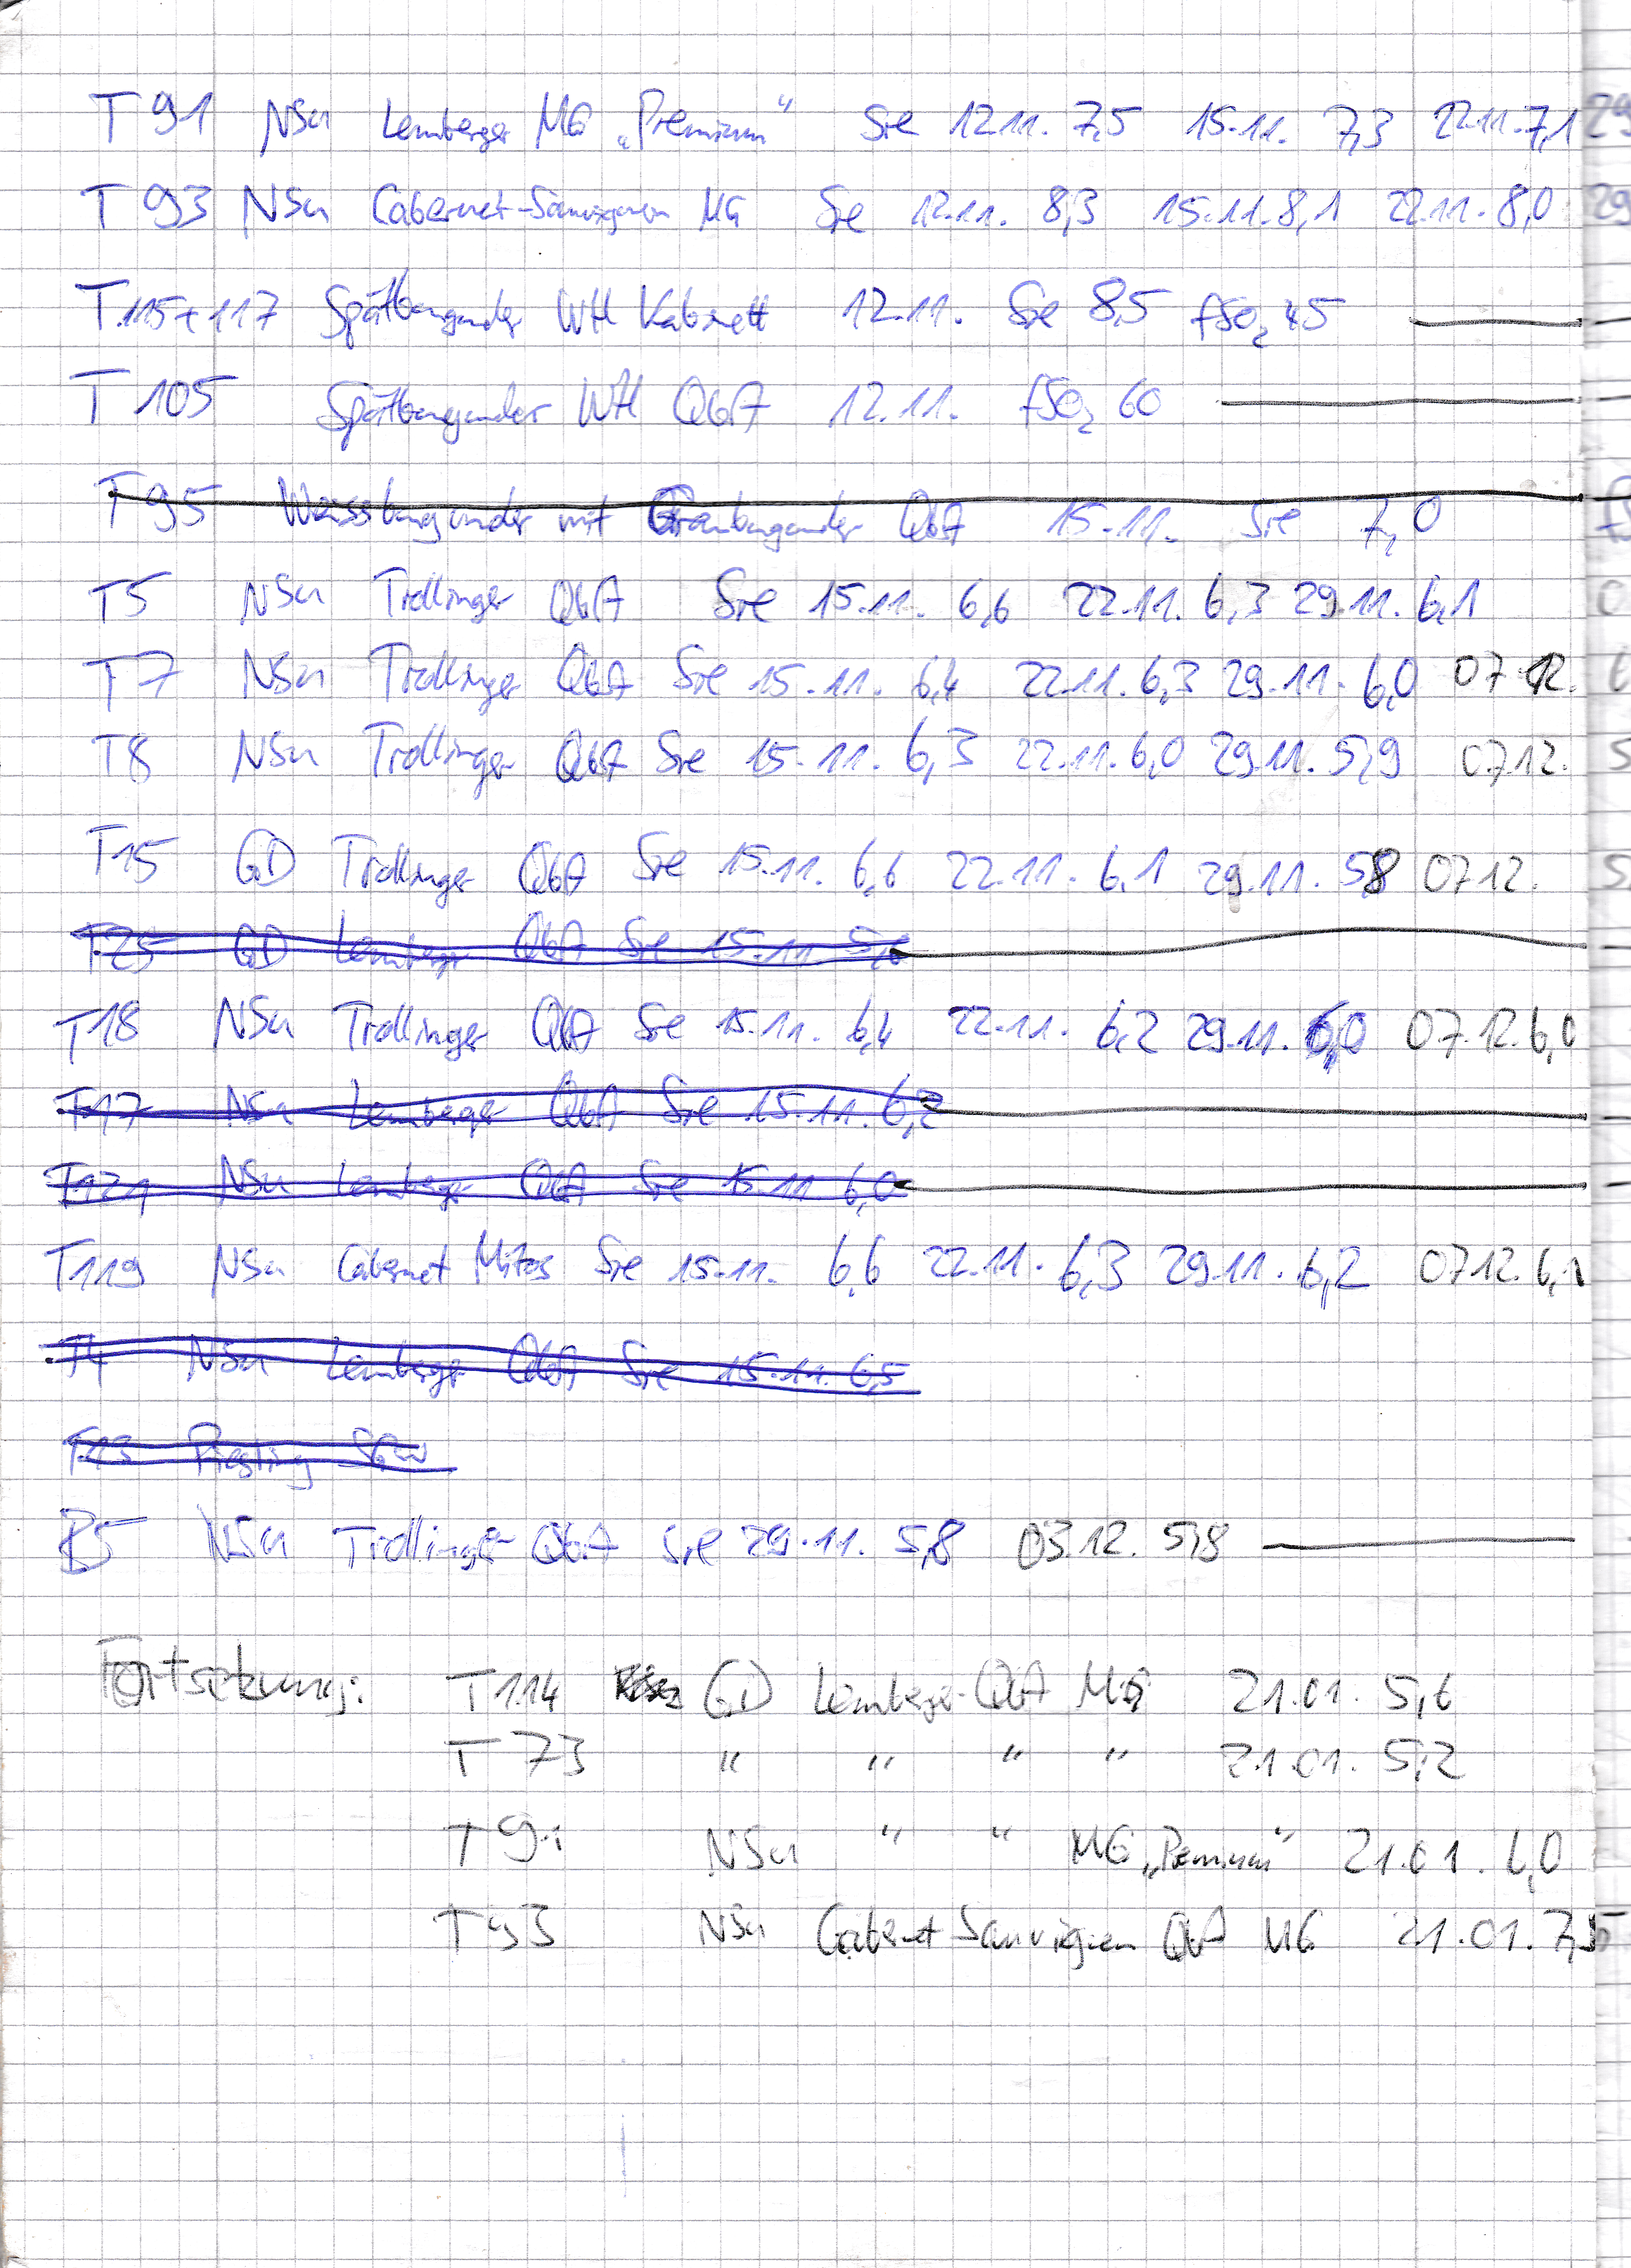 T 91 NSu Lemberger MG „Premium“ Sre 12.11. 7,5 15.11. 7,3 22.11. 7,1 29
T 93 NSu Cabernet-Sauvignon MG Sre 12.11. 8,3 15.11. 8,1 22.11. 8,0 29
T 115+117 Spätburgunder WH Kabinett 12.11. Sre 8,5 fSO₂ 45
T 105 Spätburgunder WH QbA 12.11. fSO₂ 60
T 95 Weissburgunder mit Grauburgunder QbA 15.11. Sre 7,0
T5 NSu Trollinger QbA Sre 15.11. 6,6 22.11. 6,3 29.11. 6,1 0
T7 NSu Trollinger QbA Sre 15.11. 6,4 22.11. 6,3 29.11. 6,0 07.12.
T8 NSu Trollinger QbA Sre 15.11. 6,3 22.11. 6,0 29.11. 5,9 07.12. 5
T15 GD Trollinger QbA Sre 15.11. 6,6 22.11. 6,1 29.11. 5,8 07.12. 5,
T25 GD Lemberger QbA Sre 15.11.
T18 NSu Trollinger QbA Sre 15.11. 6,4 22.11. 6,2 29.11. 6,0 07.12. 6,0
T17 NSu Lemberger QbA Sre 15.11. 6,2
T121 NSu Lemberger QbA Sre 15.11 6,0
T119 NSu Cabernet Mitos Sre 15.11. 6,6 22.11. 6,3 29.11. 6,2 07.12. 6,1
T4 NSu Lemberger QbA Sre 15.11. 6,5
T13 Riesling
B5 NSu Trollinger QbA Sre 29.11. 5,8 03.12. 5,8
Fortsetzung: T114 GD Lemberger QbA MG 21.01. 5,6
T 73 “ “ “ “ 21.01. 5,2
T 91 NSu “ “ MG „Premium“ 21.01. 6,0
T 93 NSu Cabernet Sauvignon QbA MG 21.01. 7,5